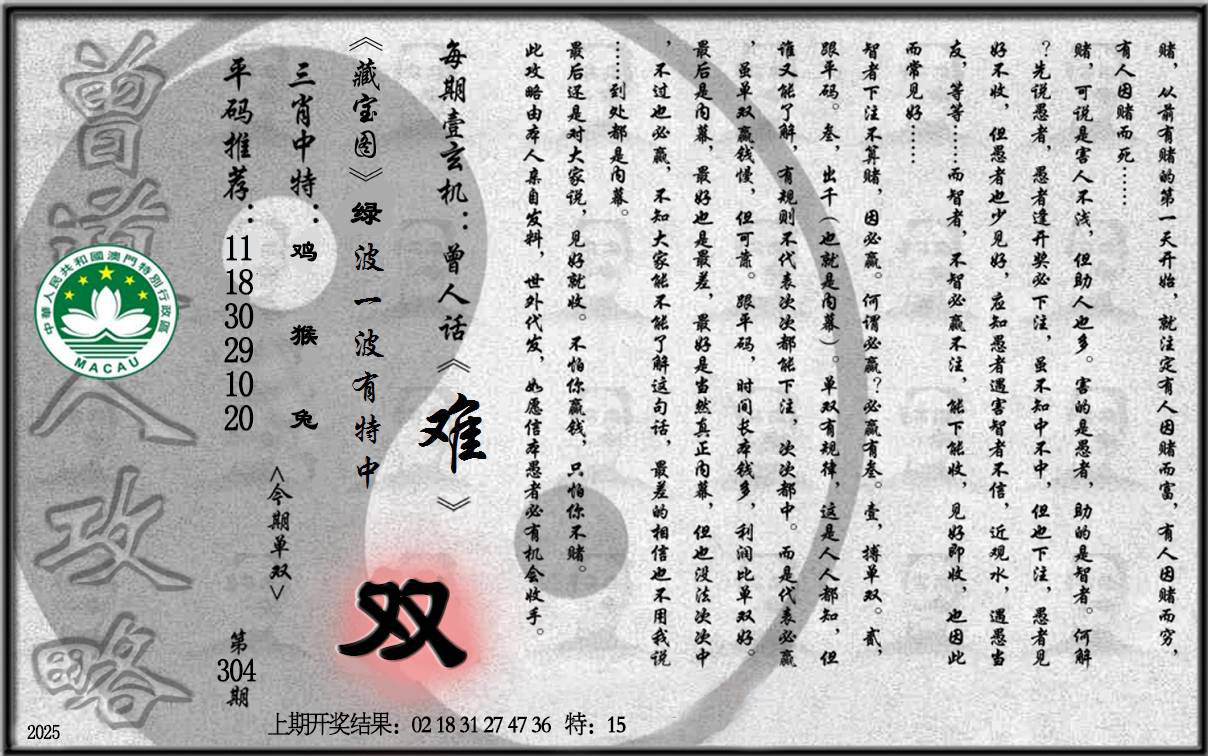 赌，从前有赌的第一天开始，就注定有人因赌而富，有人因赌而穷，
有人因赌而死……
赌，可说是害人不浅，但助人也多。害的是愚者，助的是智者。何解
？先说愚者，愚者逢开奖必下注，虽不知中不中，但也下注，愚者见
好不收，但愚者也少见好，应知愚者遇害智者不信，近观水，遇愚当
友，等等……而智者，不智必赢不注，能下能收，见好即收，也因此
而常见好……
智者下注不算赌，因必赢。何谓必赢？必赢有叁。壹，搏单双。贰，
跟平码。叁，出千（也就是内幕）。单双有规律，这是人人都知，但
谁又能了解，有规则不代表次次都能下注，次次都中。而是代表必赢
，虽单双赢钱慢，但可靠。跟平码，时间长本钱多，利润比单双好。
最后是内幕，最好也是最差，最好是当然真正内幕，但也没法次次中
，不过也必赢，不知大家能不能了解这句话，最差的相信也不用我说
……到处都是内幕。
最后还是对大家说，见好就收。不怕你赢钱，只怕你不赌。
此攻略由本人亲自发料，世外代发，如愿信本愚者必有机会收手。
每期壹玄机：曾人话《难》
《藏宝图》绿波一波有特中
双
三肖中特：鸡 猴 兔
<今期单双>
平码推荐：11 18 30 29 10 20
第304期
曾道人攻略
中華人民共和國澳門特別行政區
MACAU
上期开奖结果：02 18 31 27 47 36 特：15
2025